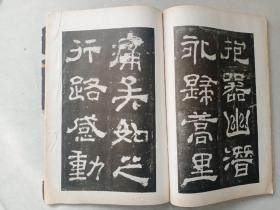 抱器幽潜
永歸蒿里
痛矣如之
行路感動